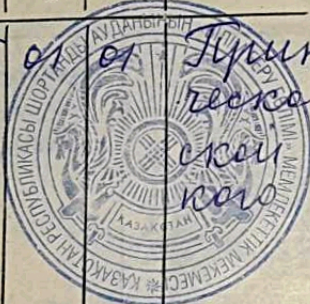 01 01 Прин
ческо
ской
кого
ҚАЗАҚСТАН РЕСПУБЛИКАСЫ ШОРТАНДЫ АУДАНЫНЫҢ
МЕМЛЕКЕТТІК МЕКЕМЕСІ
ҚАЗАҚСТАН